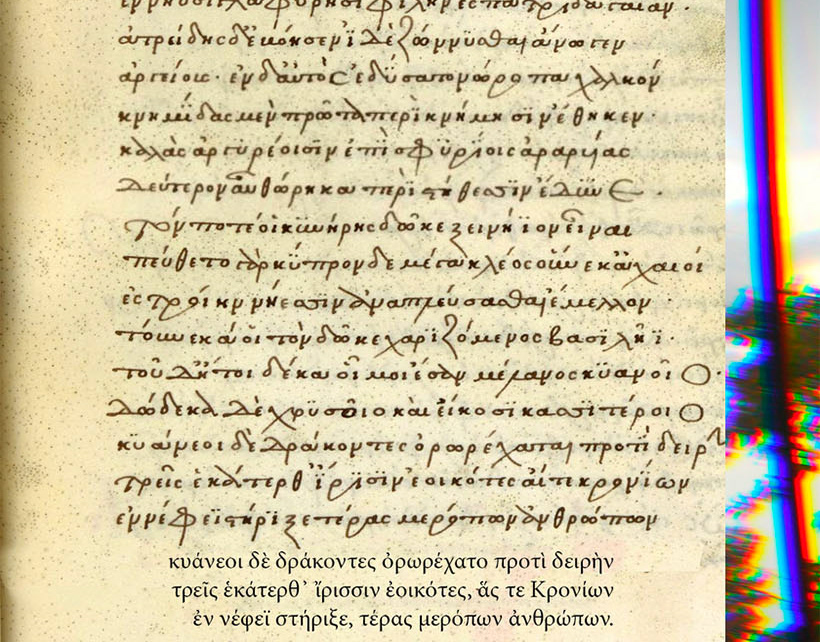 ἐν νηυσὶ γλαφυρῇσι φίλην ἐς πατρίδα γαῖαν ·
ἀτρείδης δ' ἐβόησεν ἰδὲ ζώννυσθαι ἄνωγεν
ἀργείοις · ἐν δ' αὐτὸς ἐδύσατο νώροπα χαλκόν
κνημῖδας μὲν πρῶτα περὶ κνήμησιν ἔθηκεν ·
καλὰς ἀργυρέοισιν ἐπὶ σφυρίοις ἀραρυίας
δεύτερον αὖ θώρηκα περὶ στήθεσσιν ἔδυνε ·
τόν ποτέ οἱ κινύρης δῶκε ξεινήϊον εἶναι
πεύθετο γὰρ κύπρον δὲ μέγα κλέος οὕνεκ' ἀχαιοί
ἐς τροίην νήεσσιν ἀναπλεύσεσθαι ἔμελλον ·
τοὔνεκά οἱ τὸν δῶκε χαριζόμενος βασιλῆϊ ·
τοῦ δή τοι δέκα οἶμοι ἔσαν μέλανος κυάνοιο ·
δώδεκα δὲ χρυσοῖο καὶ εἴκοσι κασσιτέροιο
κυάνεοι δὲ δράκοντες ὀρωρέχαται προτὶ δειρὴν
τρεῖς ἑκάτερθ' ἴρισσιν ἐοικότες ἅς τε κρονίων
ἐν νέφεϊ στήριξε τέρας μερόπων ἀνθρώπων
κυάνεοι δὲ δράκοντες ὀρωρέχατο προτὶ δειρὴν
τρεῖς ἑκάτερθ᾽ ἴρισσιν ἐοικότες, ἅς τε Κρονίων
ἐν νέφεϊ στήριξε, τέρας μερόπων ἀνθρώπων.